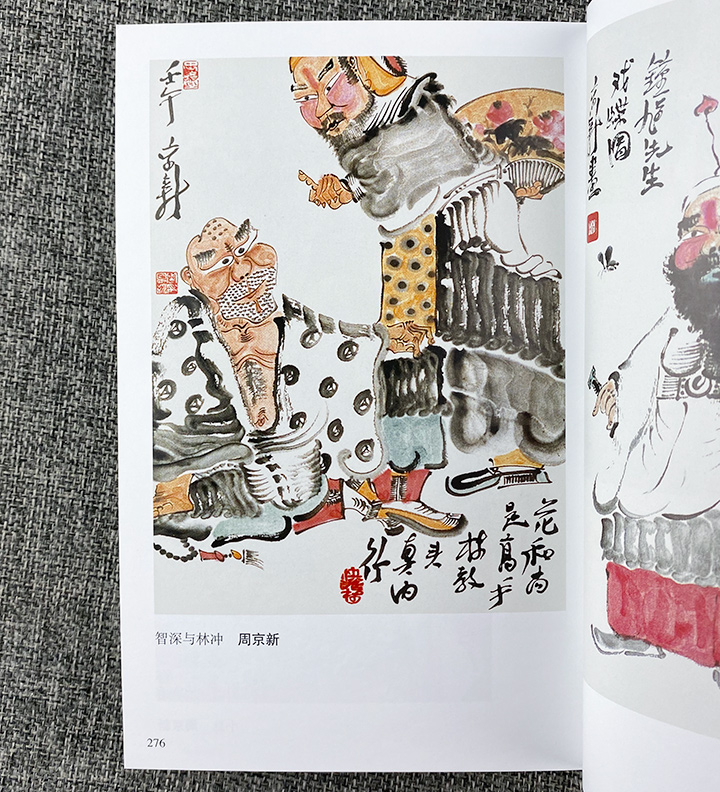 壬午 京新
花和尚
是高手
林教
头
真内
行
智深与林冲 周京新
276
钟馗先生
戏蝶图
京新画